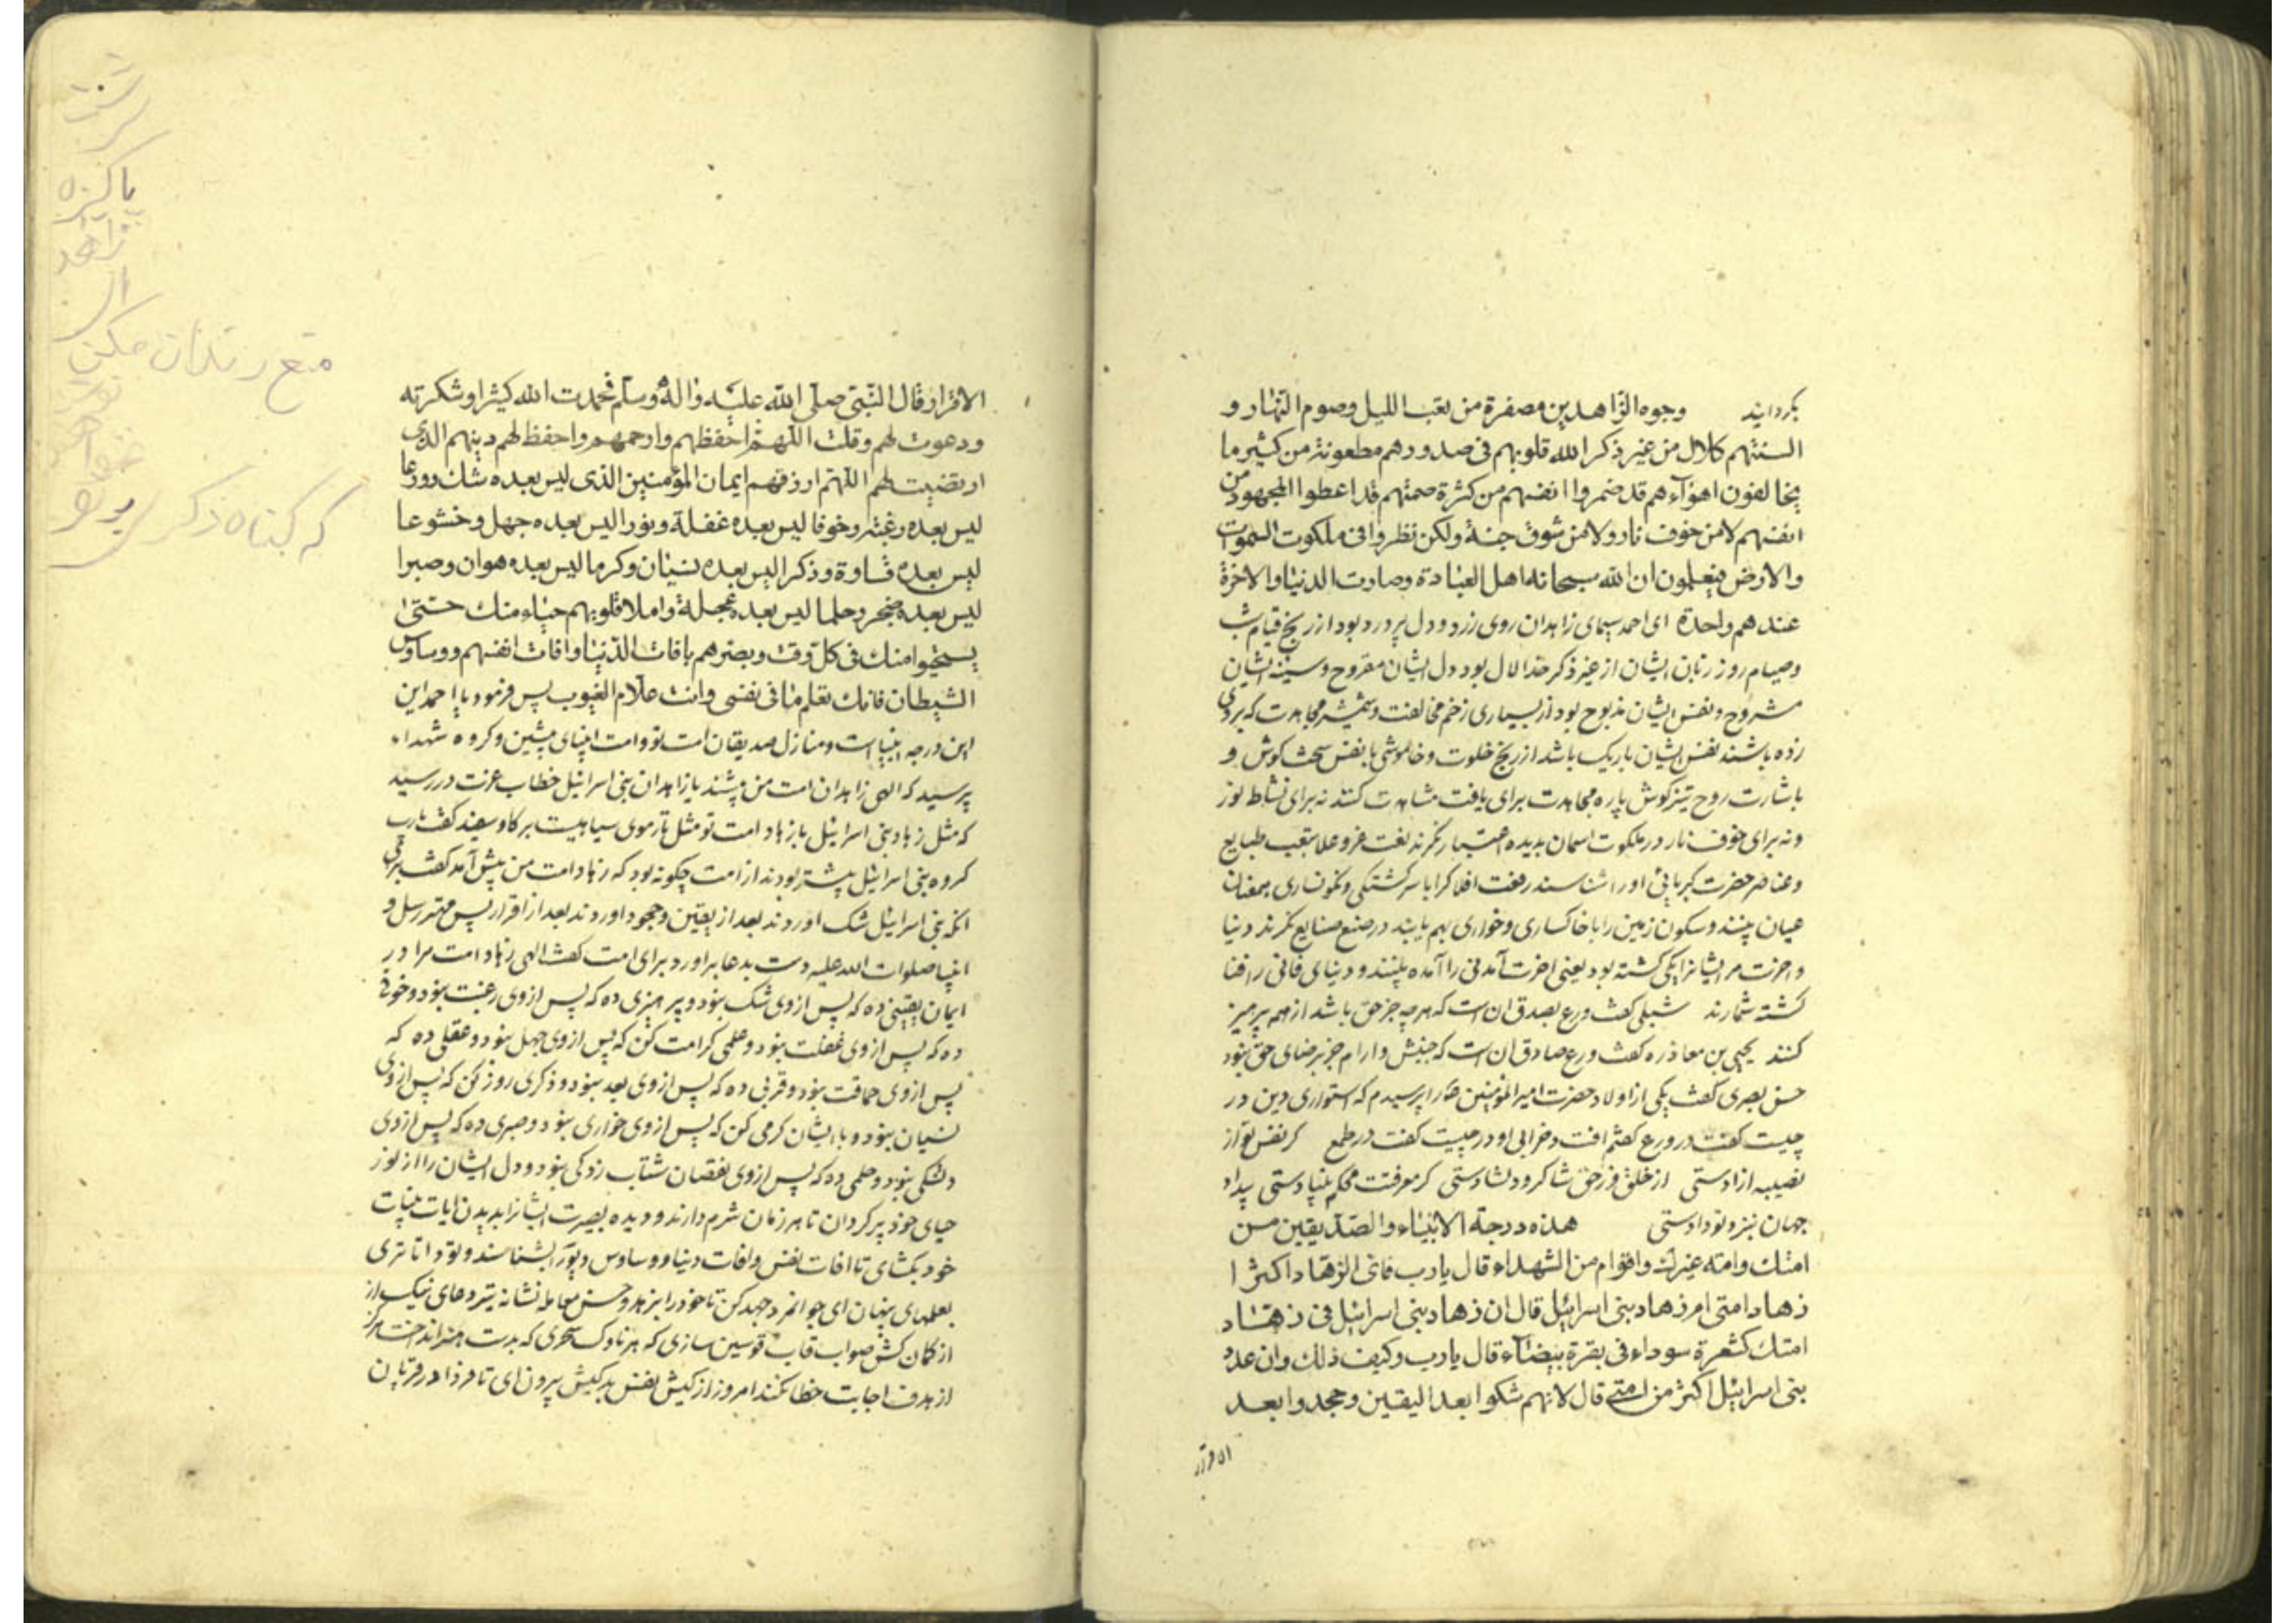 بکردانید وجوه الزاهدین مصفرة من تعب اللیل وصوم النهار و
السنتهم کلال من غیر ذکر الله قلوبهم فی صدورهم مطعونة من کثیر ما
یخالفون اهوآءهم قد ضمروا انفسهم من کثرة صمتهم قد اعطوا المجهود من
انفسهم لا من خوف نار ولا من شوق جنة ولکن نظروا فی ملکوت السموات
والارض فیعلمون ان الله سبحانه اهل العبادة وصارت الدنیا والاخرة
عندهم واحدة ای احمد سیمای زاهدان روی زرد و دل پر درد بود از رنج قیام شب
وصیام روز زبان ایشان از غیر ذکر خدا لال بود دل ایشان مقروح وسینه ایشان
مشروح ونفس ایشان مذبوح بود از بسیاری زخم مخالفت وشمشیر مجاهدت که بر وی
زده باشند نفس ایشان باریک باشد از رنج خلوت وخاموشی با نفس سخت کوش و
باشارت روح تیز کوش پاره مجاهدت برای یافت مشاهدت کنند نه برای نشاط نور
ونه برای خوف نار در ملکوت اسمان بدیده اعتبار نکرند لغت عز وعلا بتعب طبایع
وعناصر حضرت کبریائی او را شناسند رفعت افلاک را با سرکشتکی ونکونساری
عیان بینند وسکون زمین را با خاکساری وخواری بهم یابند در صنع صنایع نکرند دنیا
واخرت مر ایشانرا یکی کشته بود یعنی اخرت آمدنی را آمده بینند و دنیای فانی را فنا
کشته شمارند شبلی کفت ورع بصدق ان است که هر چه جز حق باشد از همه پرهیز
کنند یحیی بن معاذ ره کفت ورع صادق ان است که جنبش وارام جز برضای حق نبود
حسن بصری کفت یکی از اولاد حضرت امیر المؤمنین را پرسیدم که استواری دین در
چیست کفت در ورع کفتم افت وخرابی او در چیست کفت در طمع کر نفس تو از
نصیبه ازادستی از خلق وز حق شاکر ودلشادستی کر معرفت محکم بنیادستی بیداد
جهان نبزد تو دادستی هذه درجة الانبیاء والصدیقین من
امتک وامته غیرک واقوام من الشهداء قال یارب فای الزهاد اکثر ا
زهاد امتی ام زهاد بنی اسرائیل قال ان زهاد بنی اسرائیل فی زهاد
امتک کشعرة سوداء فی بقرة بیضآء قال یارب وکیف ذلک وان عدد
بنی اسرائیل اکثر من امتی قال لانهم شکوا بعد الیقین وجحدوا بعد
الاقرار
الاقرار قال النبی صلی الله علیه واله وسلم فحمدت الله کثیرا وشکرته
ودعوت لهم وقلت اللهم احفظهم وارحمهم واحفظ لهم دینهم الذی
ارتضیت لهم اللهم ارزقهم ایمان المؤمنین الذی لیس بعده شک وورعا
لیس بعده رغبة وخوفا لیس بعده غفلة ونورا لیس بعده جهل وخشوعا
لیس بعده قساوة وذکرا لیس بعده نسیان وکرما لیس بعده هوان وصبرا
لیس بعده ضجر وحلما لیس بعده عجلة واملا قلوبهم حیاء منک حتی
یستحیوا منک فی کل وقت وبصرهم بافات الدنیا وافات انفسهم ووساوس
الشیطان فانک تعلم ما فی نفسی وانت علام الغیوب پس فرمود یا احمد این
این درجه انبیا است ومنازل صدیقان امت تو وامت انبیای پیشین وکروه شهداء
پرسید که الهی زاهدان امت من بیشند یا زاهدان بنی اسرائیل خطاب عزت در رسید
که مثل زهاد بنی اسرائیل با زهاد امت تو مثل تار موی سیاهیست بر کاو سفید کفت یارب
کروه بنی اسرائیل بیشتر بودند از امت چکونه بود که زهاد امت من بیش آمد کفت
انکه بنی اسرائیل شک اوردند بعد از یقین وجحود اوردند بعد از اقرار پس مهتر رسل و
انبیا صلوات الله علیه دست بدعا براورد برای امت کفت الهی زهاد امت مرا در
ایمان یقینی ده که پس از وی شک نبود وپرهیزی ده که پس از وی رغبت نبود وخوفی
ده که پس از وی غفلت نبود وعلمی کرامت کن که پس از وی جهل نبود وعقلی ده که
پس از وی حماقت نبود وقربی ده که پس از وی بعد نبود وذکری روزی کن که پس از وی
نسیان نبود وبا ایشان کرمی کن که پس از وی خواری نبود وصبری ده که پس از وی
دلتنکی نبود وحلمی ده که پس از وی نقصان شتاب زدکی نبود ودل ایشان را از نور
حیای خود پر کردان تا هر زمان شرم دارند ودیده بصیرت ایشانرا بدیدن ایات بینات
خود بکشای تا افات نفس وافات دنیا ووساوس دیو را بشناسند وتو دانا تری
بعلمهای پنهان ای جوانمرد جهد کن تا خود را بزهد وحسن معامله نشانه تیر دعای نیک از
از کمان کش صواب قاب قوسین سازی که هر ناوک سحری که بدست هنر انداخت هرکز
از هدف اجابت خطا نکند امروز از کیش نفس بدکیش بیرون ای تا فردا در قربان
پاکیزه
زاهد
منع رندان مکن
که کناه ذکر
بر تو